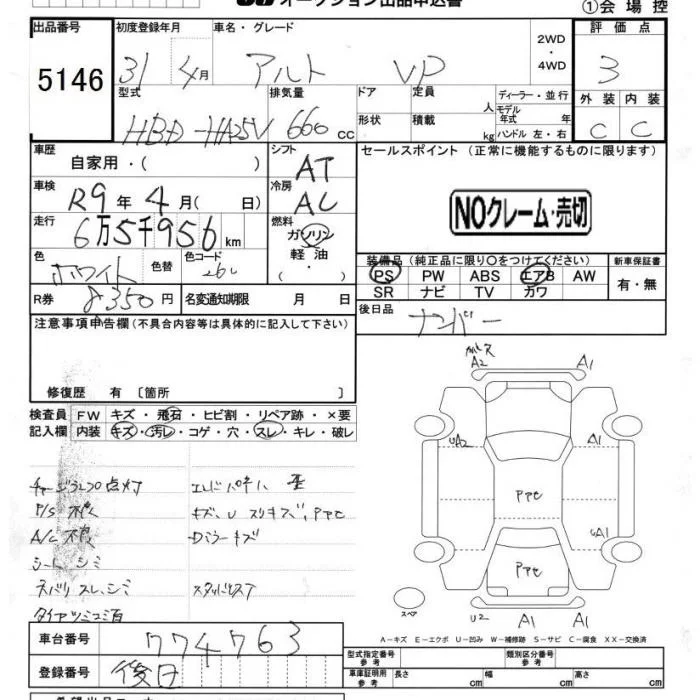 オークション出品申込書
①会場控
出品番号 初度登録年月 車名・グレード 2WD・4WD 評価点
5146 31 4月 アルト VP 3
型式 排気量 ドア 定員 人 ディーラー・並行 外装 内装
HBD-HA25V 660 cc 形状 積載 kg モデル年式 年 ハンドル 左・右 C C
車歴 自家用・( ) シフト AT セールスポイント (正常に機能するものに限ります)
車検 R9年4月( 日) 冷房 AC
NOクレーム・売切
走行 6万5千956km 燃料 ガソリン 軽油・( )
色 ホワイト 色替 色コード 26U
装備品 (純正品に限り〇をつけてください) 新車保証書
PS PW ABS エアB AW 有・無
SR ナビ TV カワ
R券 8350円 名変通知期限 月 日 後日品 ナンバー
注意事項申告欄 (不具合内容等は具体的に記入して下さい)
修復歴 有 〔箇所 〕
検査員記入欄 FW キズ・飛石・ヒビ割・リペア跡・×要
内装 キズ・汚レ・コゲ・穴・スレ・キレ・破レ
A2 A1
UA2 A1
Pアセ
UA1
Pアセ
U2 A1 A1
スペア
チャージランプ点灯
P/S 不良
A/C 不良 Dミラーキズ
シート シミ
A-キズ E-エクボ U-凹み W-補修跡 S-サビ C-腐食 XX-交換済
車台番号 774763
型式指定番号 参考 類別区分番号 参考
登録番号 後日
車庫証明用 参考 長さ cm 幅 cm 高さ cm